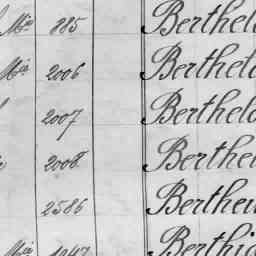 Mie 885 Berthelo
Mie 2006 Berthelo
2007 Berthelo
2008 Berthe
2586 Bertheu
Mie 1947 Berthio